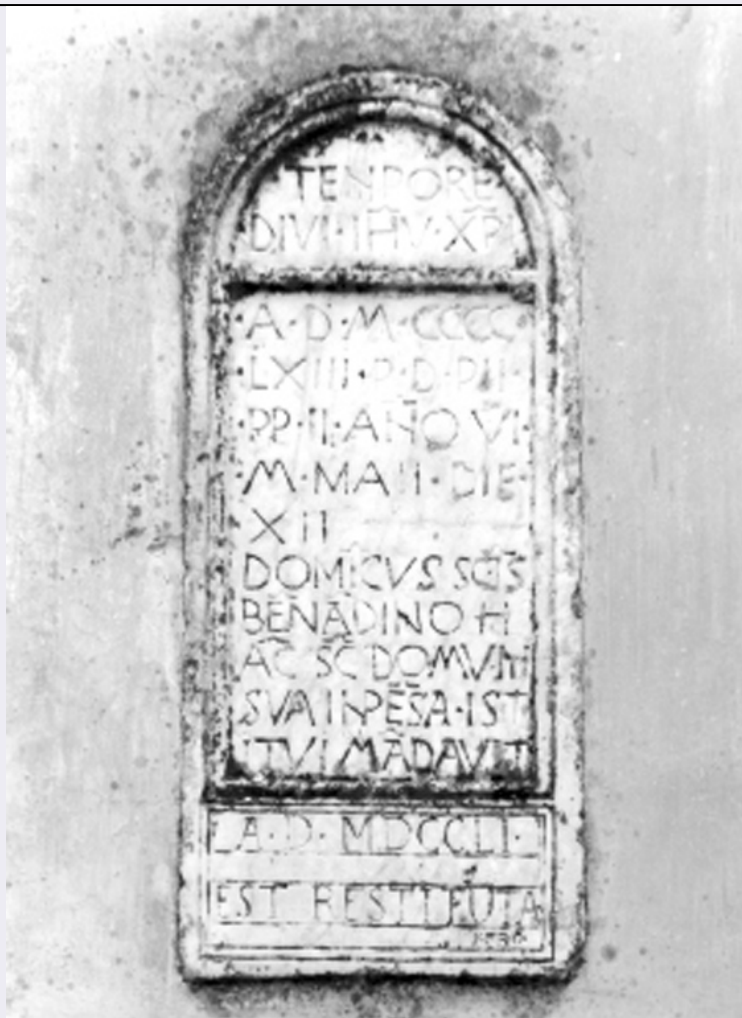 ·TENPORE·
DIVI·IH̄V·XP̄
·A·D·M·CCCC·
·LXIII·P·D·PII·
·PP·II·AN̄O VI·
·M·MAII·DIE·
XII
DOMĪCVS SC̄TS̄
BĒNĀDINO H
AC̄ SC̄ DOMVM
SVA INPĒS̄A·IST
ITVI MĀDAVIT
A·D·MDCCLI·
EST RESTITUTA